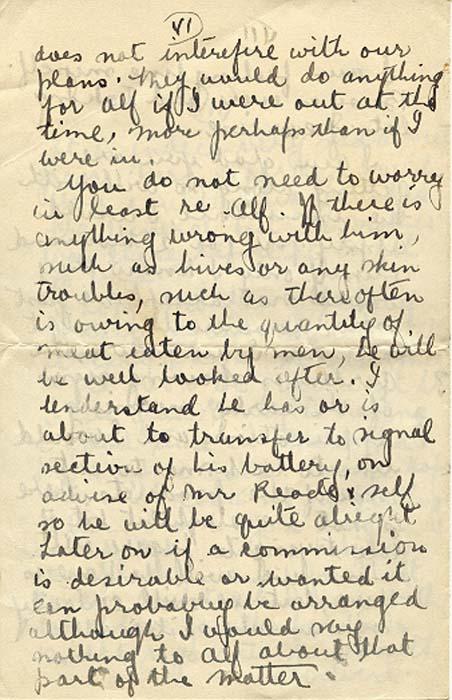 VI
does not interefire with our
plans. They would do anything
for alf if I were out at the
time, more perhaps than if I
were in.
You do not need to worry
in least re Alf. If there is
anything wrong with him,
such as hives or any skin
troubles, such as there often
is owing to the quantity of
meat eaten by men, he will
be well looked after. I
understand he has or is
about to transfer to signal
section of his battery, on
advise of Mr & self
so he will be quite alright
Later on if a commission
is desirable or wanted it
can probably be arranged
although I would say
nothing to Alf about that
part of the matter.